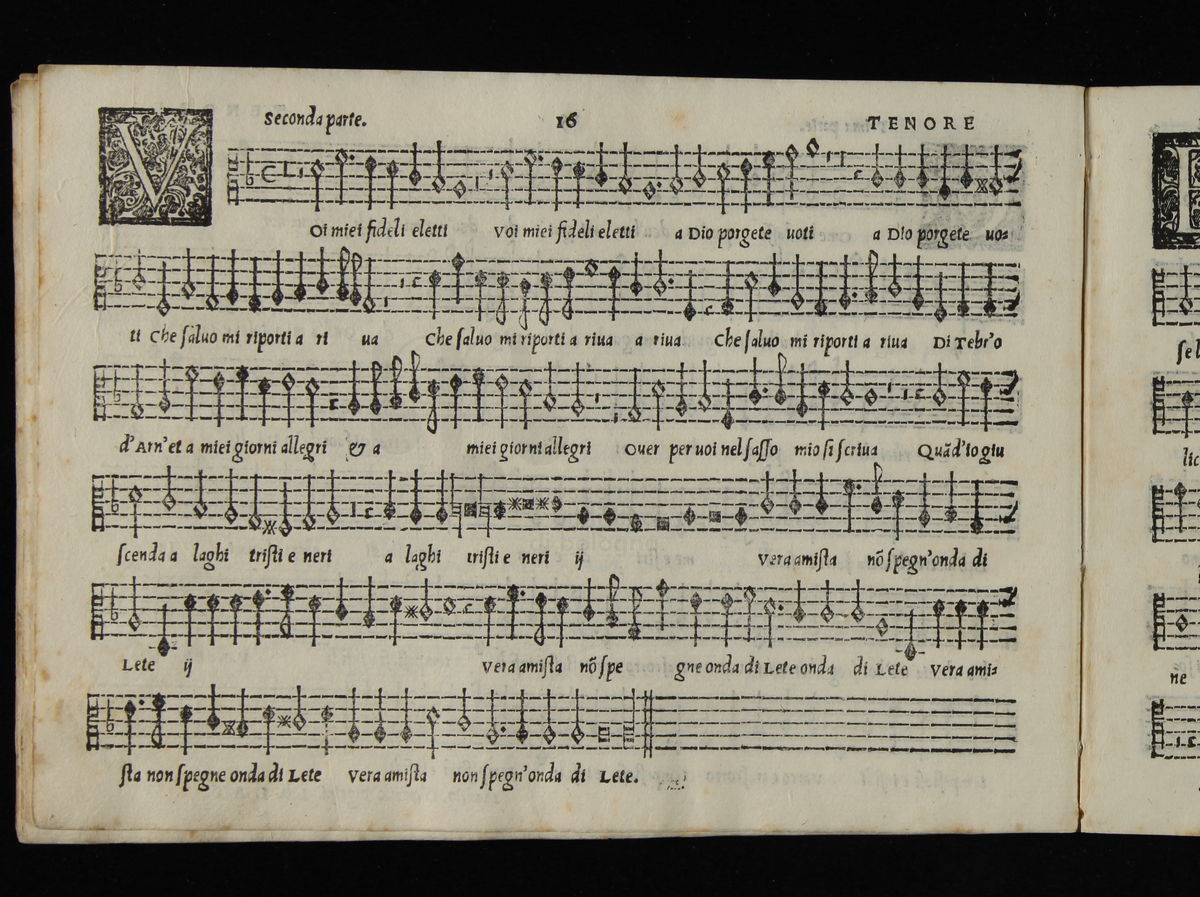 Seconda parte. 16 TENORE
VOi miei fideli eletti Voi miei fideli eletti a Dio porgete uoti a Dio porgete uo=
ti Che ſaluo mi riporti a ri ua Che ſaluo mi riporti a riua a riua Che ſaluo mi riporti a riua Di Tebr'o
d'Arn'et a miei giorni allegri & a miei giorni allegri Ouer per uoi nel ſaſſo mio ſi ſcriua Quãd'io giu
ſcenda a laghi triſti e neri a laghi triſti e neri ij Vera amiſta nõ ſpegn'onda di
Lete ij Vera amiſta nõ ſpe gne onda di Lete onda di Lete Vera ami=
ſta non ſpegne onda di Lete Vera amiſta non ſpegn'onda di Lete.
ſe l
lic
ne